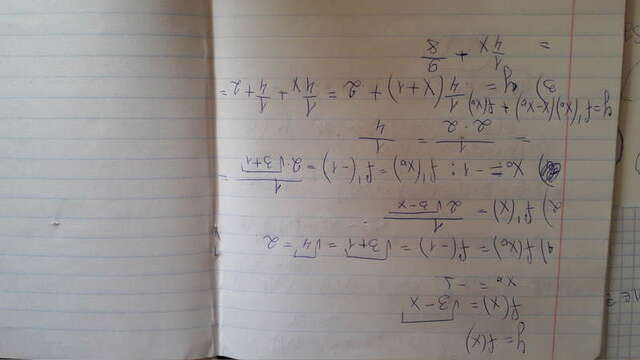 y=f(x)
f(x)=√(3-x)
x₀ = -1
1) f(x₀)=f(-1)=√(3+1)=√4=2.
2) f'(x)= 1/(2√(3-x)).
x₀=-1: f'(x₀)=f'(-1)= 1/(2·√(3+1)) =
= 1/(2·2) = 1/4
y=f'(x₀)(x-x₀)+f(x₀)
3) y= 1/4(x+1)+2 = 1/4x+1/4+2=
= 1/4x +